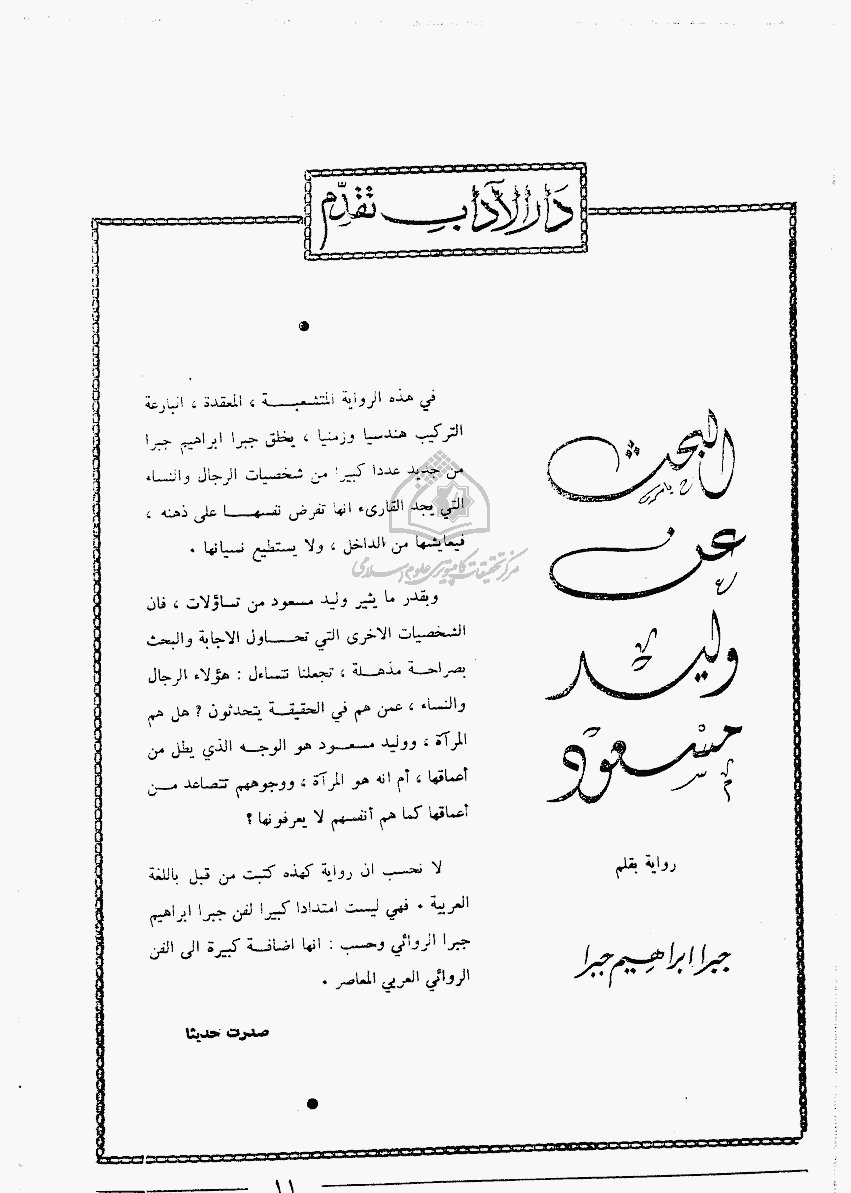 دار الآداب تقدم
البحث
عن
وليد
مسعود
رواية بقلم
جبرا ابراهيم جبرا
في هذه الرواية المتشعبـــة ، المعقدة ، البارعة
التركيب هندسيا وزمنيا ، يخلق جبرا ابراهيم جبرا
من جديد عددا كبيرا من شخصيات الرجال والنساء
التي يجد القارىء انها تفرض نفسهـــا على ذهنه ،
فيعايشها من الداخل ، ولا يستطيع نسيانها .
وبقدر ما يثير وليد مسعود من تساؤلات ، فان
الشخصيات الاخرى التي تحـــاول الاجابة والبحث
بصراحـة مذهلـة ، تجعلنا نتساءل : هؤلاء الرجال
والنساء ، عمن هم في الحقيقـة يتحدثون ؟ هل هم
المرآة ، ووليد مسعـود هو الوجـه الذي يطل من
أعماقها ، أم انه هو المرآة ، ووجوههم تتصاعد مــن
أعماقها كما هم أنفسهم لا يعرفونها ؟
لا نحسب ان رواية كهذه كتبت من قبل باللغة
العربية . فهي ليست امتدادا كبيرا لفن جبرا ابراهيم
جبرا الروائي وحسب : انها اضافـة كبيرة الى الفن
الروائي العربي المعاصر .
صدرت حديثا
مركز تحقيقات كامپيوتری علوم اسلامی
١١